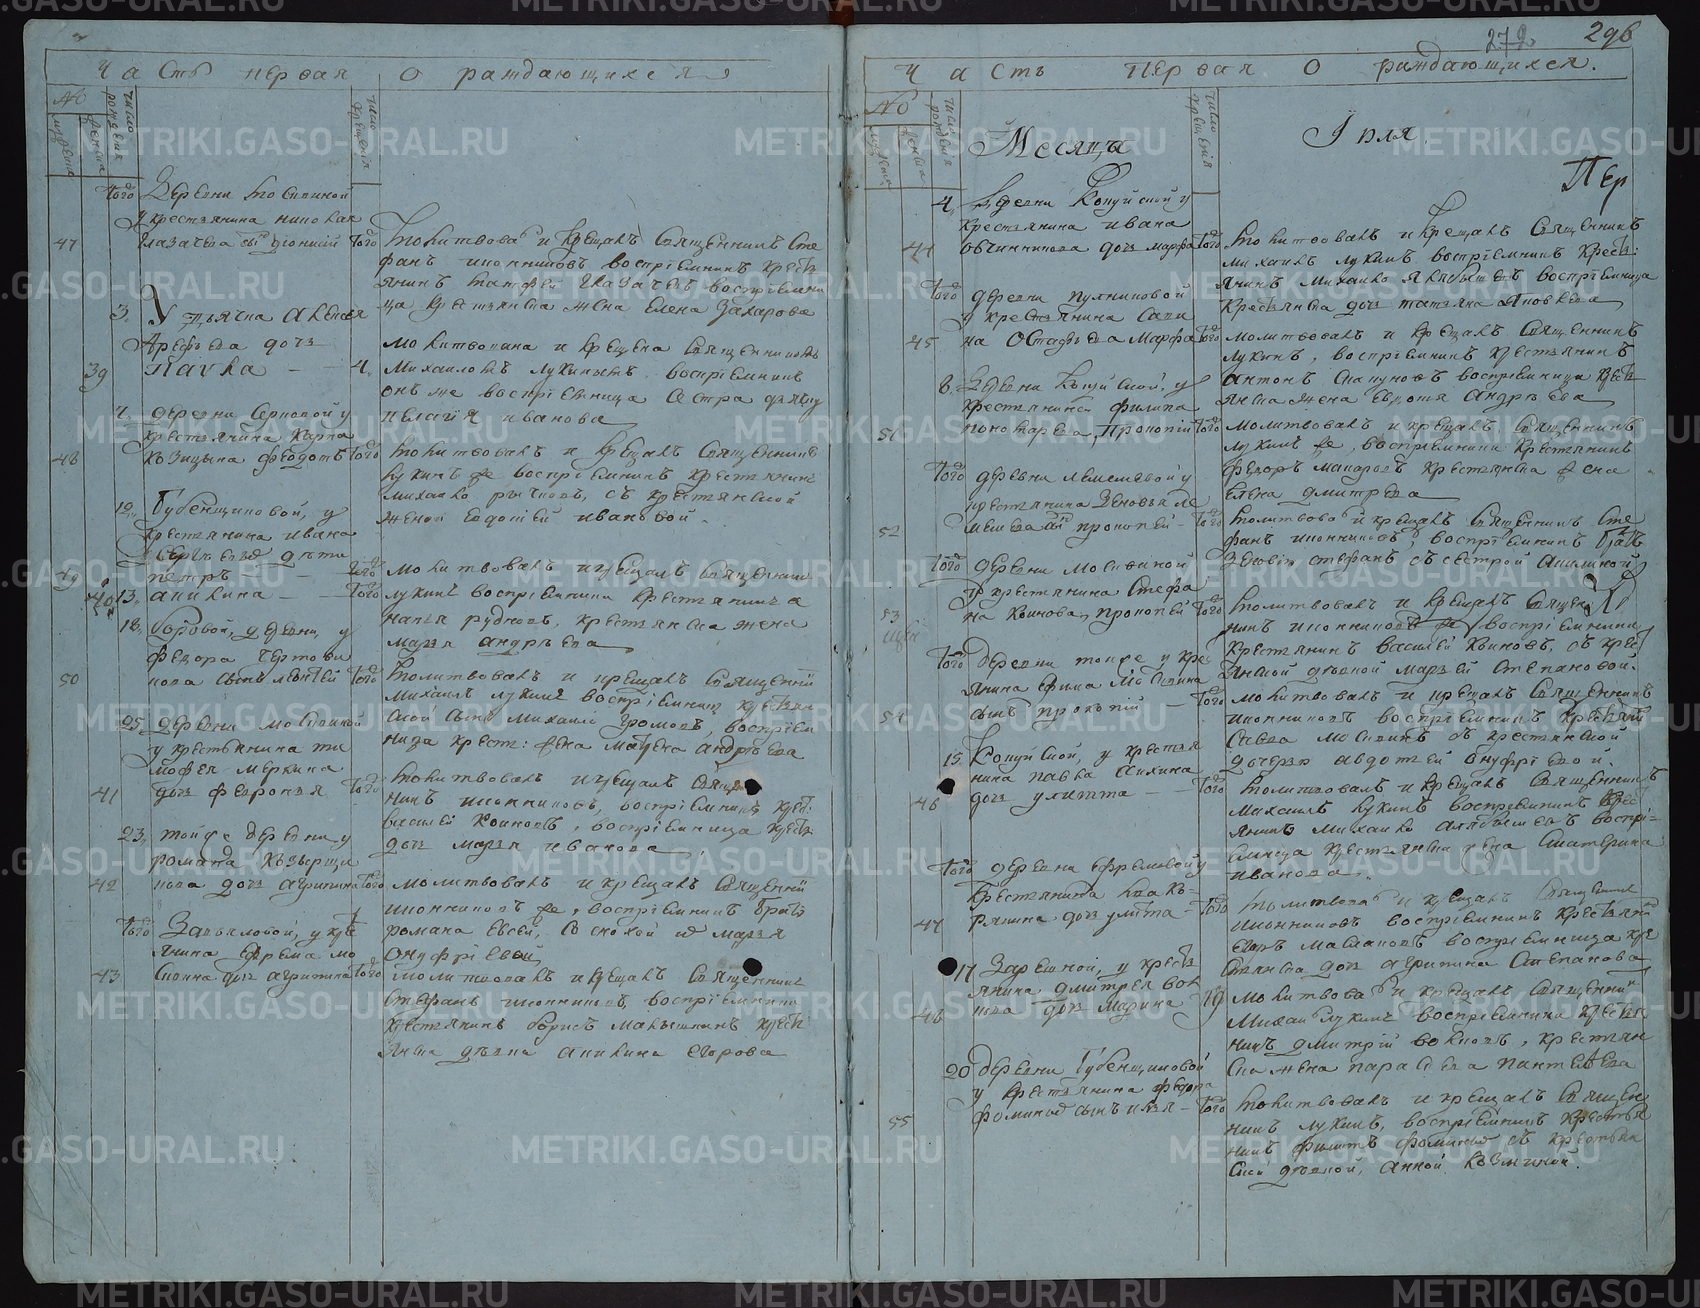 272 296
Часть первая о раждающихся
№
число рождения
число крещения
мужеска
женска
того Деревни Мосиной
у крестьянина Николая
47 Казачева сынъ Дионисий того
Молитвовалъ и крещалъ Священникъ Сте
фанъ Иконниковъ воспріемникъ кресть
янинъ Тимофей Казачевъ воспріемни
ца крестьянска жена Елена Захарова
3. У дьячка Алексея
Арефьева дочь
39 Павла 4.
Молитвована и крещена Священникомъ
Михаиломъ Лукинымъ воспріемникъ
онъ же воспріемница сестра дьячку
Пелагія Иванова
7. деревни Серковой у
крестьянина Карпа
48 Козицына Федотъ того
Молитвовалъ и крещалъ Священникъ
Лукинъ же воспріемникъ крестьянинъ
Михайло Рычковъ, съ крестьянской
женой Евдокіей Ивановой.
12. Губенщиковой, у
крестьянина Ивана
дети
49 Петръ того
40 13. Акилина того
Молитвовалъ и крещалъ Священникъ
Лукинъ воспріемники крестьянинъ
Рудновъ, крестьянска жена
Марья Андрѣева
18. деревни, у
Федора Чертови
50 кова сынъ Леонтей того
Молитвовалъ и крещалъ Священникъ
Михаилъ Лукинъ воспріемникъ крестьян
ской сынъ Михайло Громовъ, воспріем
ница крест: жена Матрена Андрѣева
25. Деревни Мосиной
у крестьянина Ти
мофея Меркина
41 дочь Февронья того
Молитвовалъ и крещалъ Священ
никъ Иконниковъ, воспріемникъ крест:
Василей Коиновъ, воспріемница крест:
дочь Марья Иванова.
23. той же деревни у
Романа Козьорщи
42 кова дочь Агрипина того
Молитвовалъ и крещалъ Священни
Иконниковъ же, воспріемникъ братъ
Романа Евсей, со снохой Марья
Онуфріевой
того Запаловой, у кре
янина Ефима Мо
43 сина дочь Агрипина того
Молитвовалъ и крещалъ Священникъ
Стефанъ Иконниковъ, воспріемники
крестьянинъ Борисъ Макышкинъ крест
янка девка Акилина Егорова
Часть первая о раждающихся.
№
число рождения
число крещения
мужеска
женска
Месяцъ Iюля
Пер
4. Деревни Копуйской у
крестьянина Ивана
44 Овчинникова дочь Марфа того
Молитвовалъ и крещалъ Священникъ
Михаилъ Лукинъ воспріемникъ кресть:
янинъ Михайло воспріемница
крестьянска дочь Татьяна Яковлева
того деревни Пулниковой
у крестьянина Сави
45 на Остафьева Марфа того
Молитвовалъ и крещалъ Священникъ
Лукинъ, воспріемникъ крестьянинъ
Антонъ Сапуновъ воспріемница крест
янска жена Евдокія Андрѣева
8. Деревни Копуйской, у
крестьянина Филипа
51 Пономарева, Прокопій того
Молитвовалъ и крещалъ Священникъ
Лукинъ же, воспріемники крестьянинъ
Федоръ Макаровъ крестьянска жена
Елена Дмитрева
того деревни Лемешевой у
крестьянина Зеновья Ле
52 мешева сынъ Прокопей того
Молитвовалъ и крещалъ Священникъ Сте
фанъ Иконниковъ, воспріемникъ братъ
Зеновію Стефанъ съ сестрой Акилиной
того деревни Мосиной
у крестьянина Стефа
53 на Коинова, Прокопей того
Молитвовалъ и крещалъ Священ
никъ Иконниковъ же воспріемники
крестьянинъ Василей Коиновъ, съ крест
янской девкой Марьей Степановой.
того Деревни тоиже у кре
янина Ефима Мосина
54 сынъ Прокопій того
Молитвовалъ и крещалъ Священникъ
Иконниковъ воспріемникъ крестьянинъ
Савва Мосинъ съ крестьянской
дочерью Авдотьей Онуфріевой.
15. Копуйской, у крестья
нина Павла Аникина
46 дочь Улитта того
Молитвовалъ и крещалъ Священникъ
Михаилъ Лукинъ воспріемникъ крест
янинъ Михайло воспрі-
емница крестьянска жена Екатерина
Иванова.
того деревни Ефремовой у
крестьянина
47 рякина дочь Улитта того
Молитвовалъ и крещалъ Священникъ
Иконниковъ воспріемникъ крестьянинъ
Егоръ воспріемница кре
стьянска дочь Агрипина Степанова
17. Зарешной, у кресть
янина Дмитрея Вол
48 кова дочь Марина 19
Молитвовалъ и крещалъ Священникъ
Михаилъ Лукинъ воспріемники крестья
нинъ Дмитрій Волковъ, крестьян
ска жена Параскева Пантелѣева
20 деревни Губенщиковой
у крестьянина Федора
55 Фоминыхъ сынъ Илья того
Молитвовалъ и крещалъ Священ
никъ Лукинъ, воспріемникъ крестья
нинъ Филипъ Фоминыхъ съ крестьян
ской девкой, Анной Козминой.
METRIKI.GASO-URAL.RU